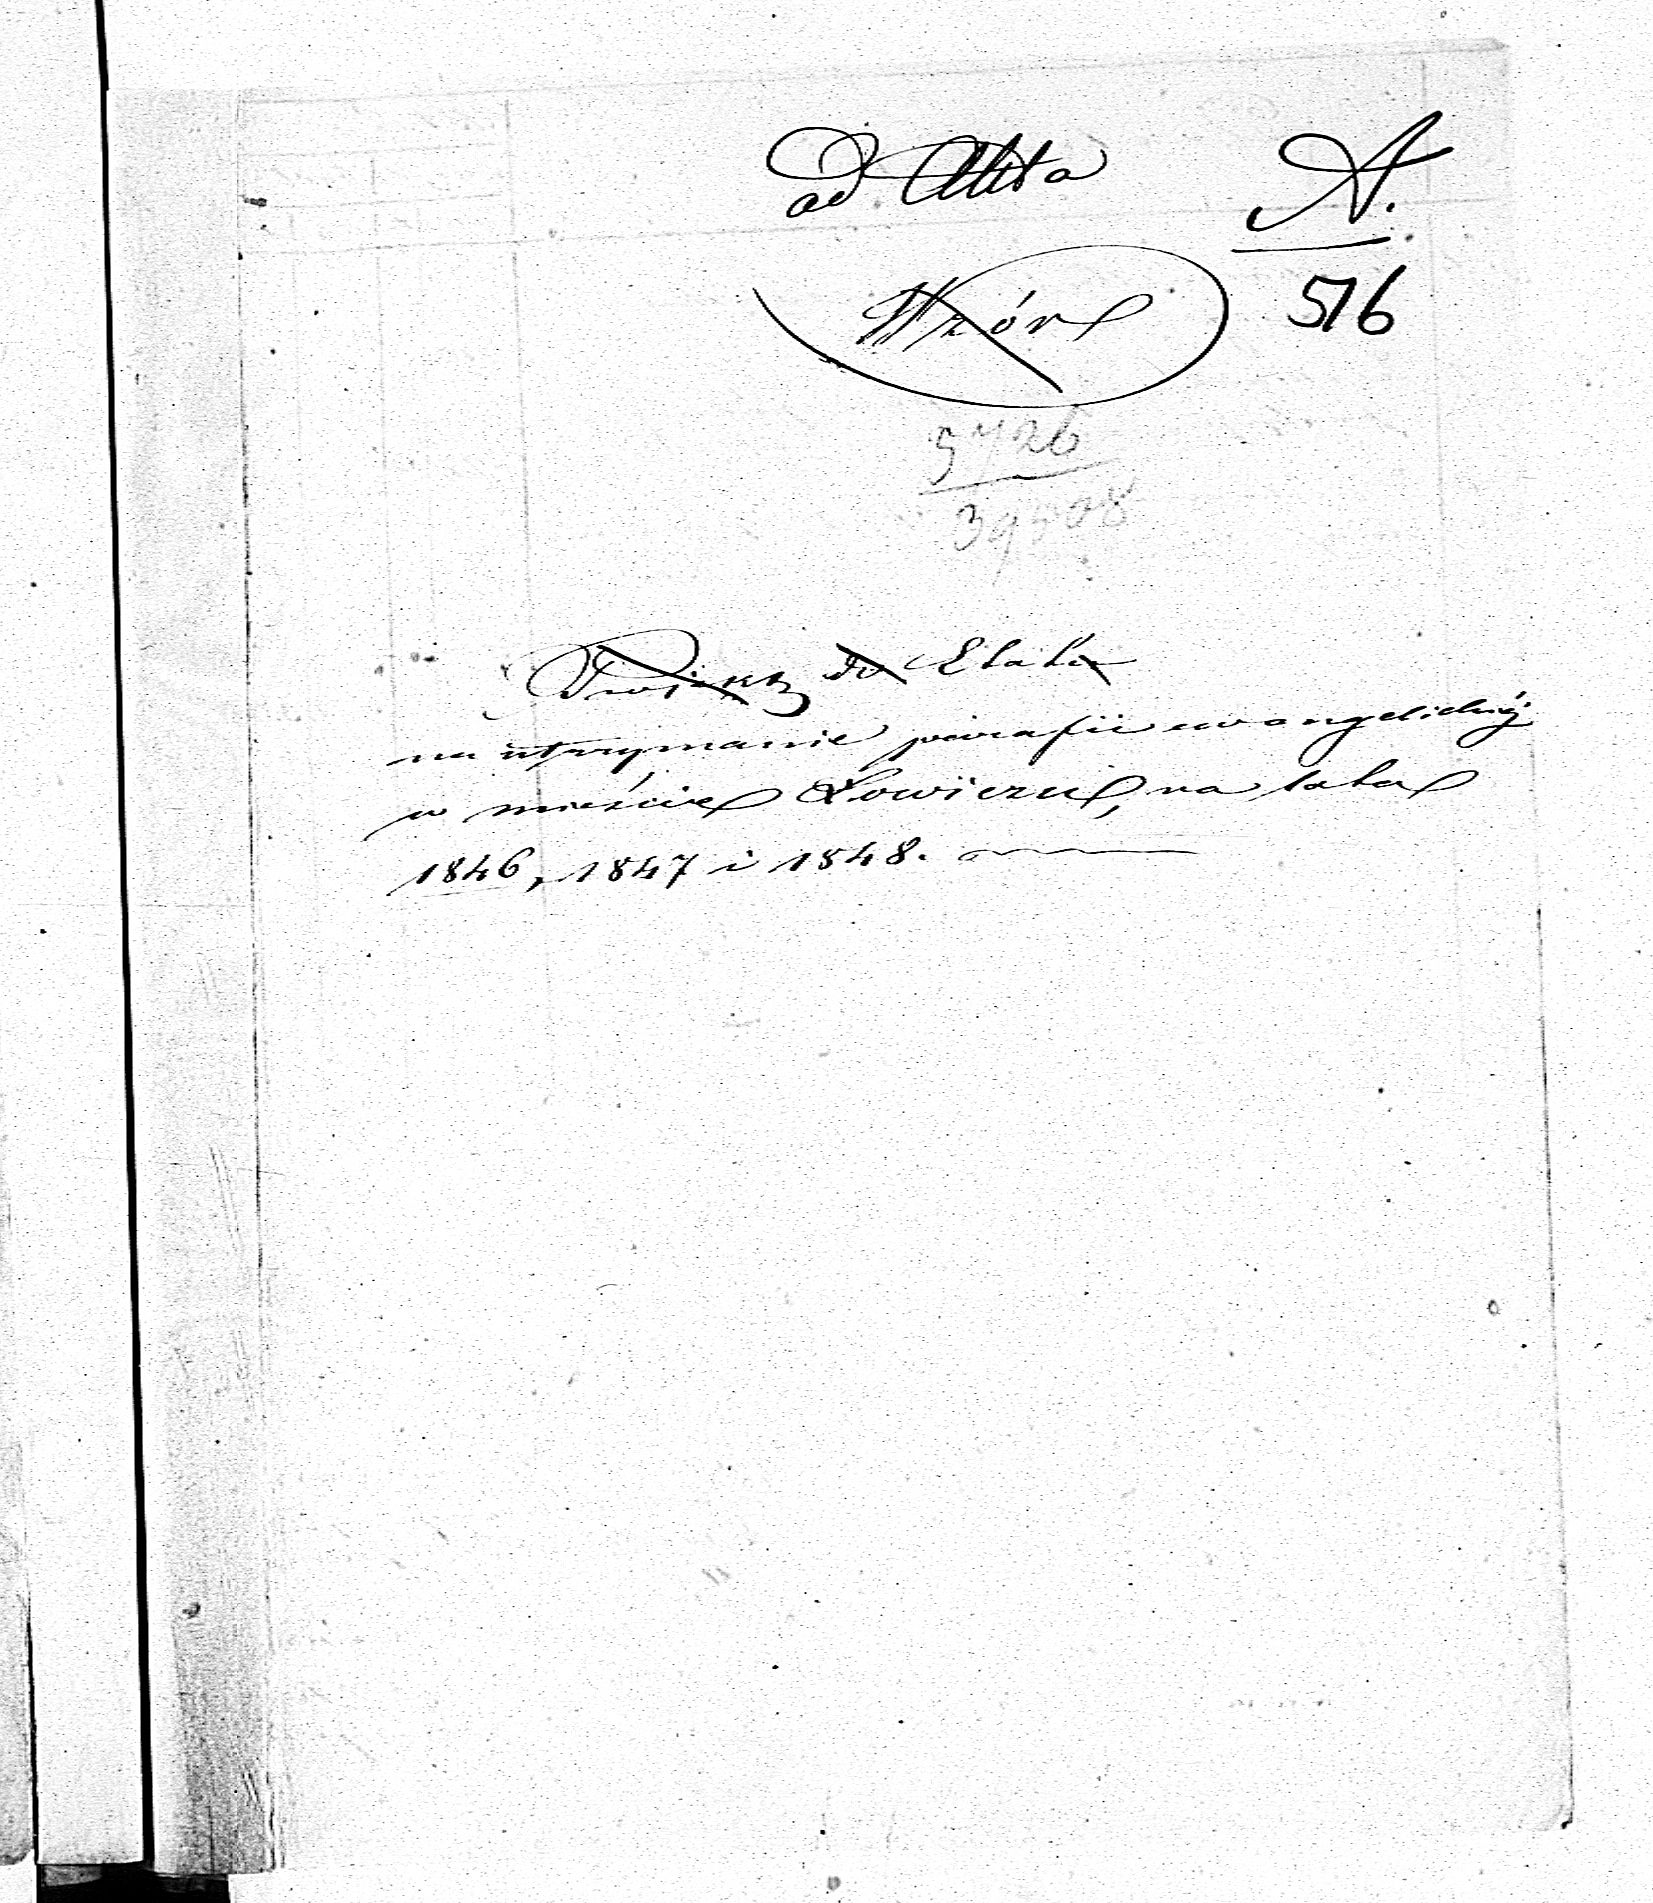 ad Akta A.
Wzór 516
5726
Projekt do Etatu
na utrzymanie parafii ewangelickiéj
w mieście Łowiczu, na lata
1846, 1847 i 1848.